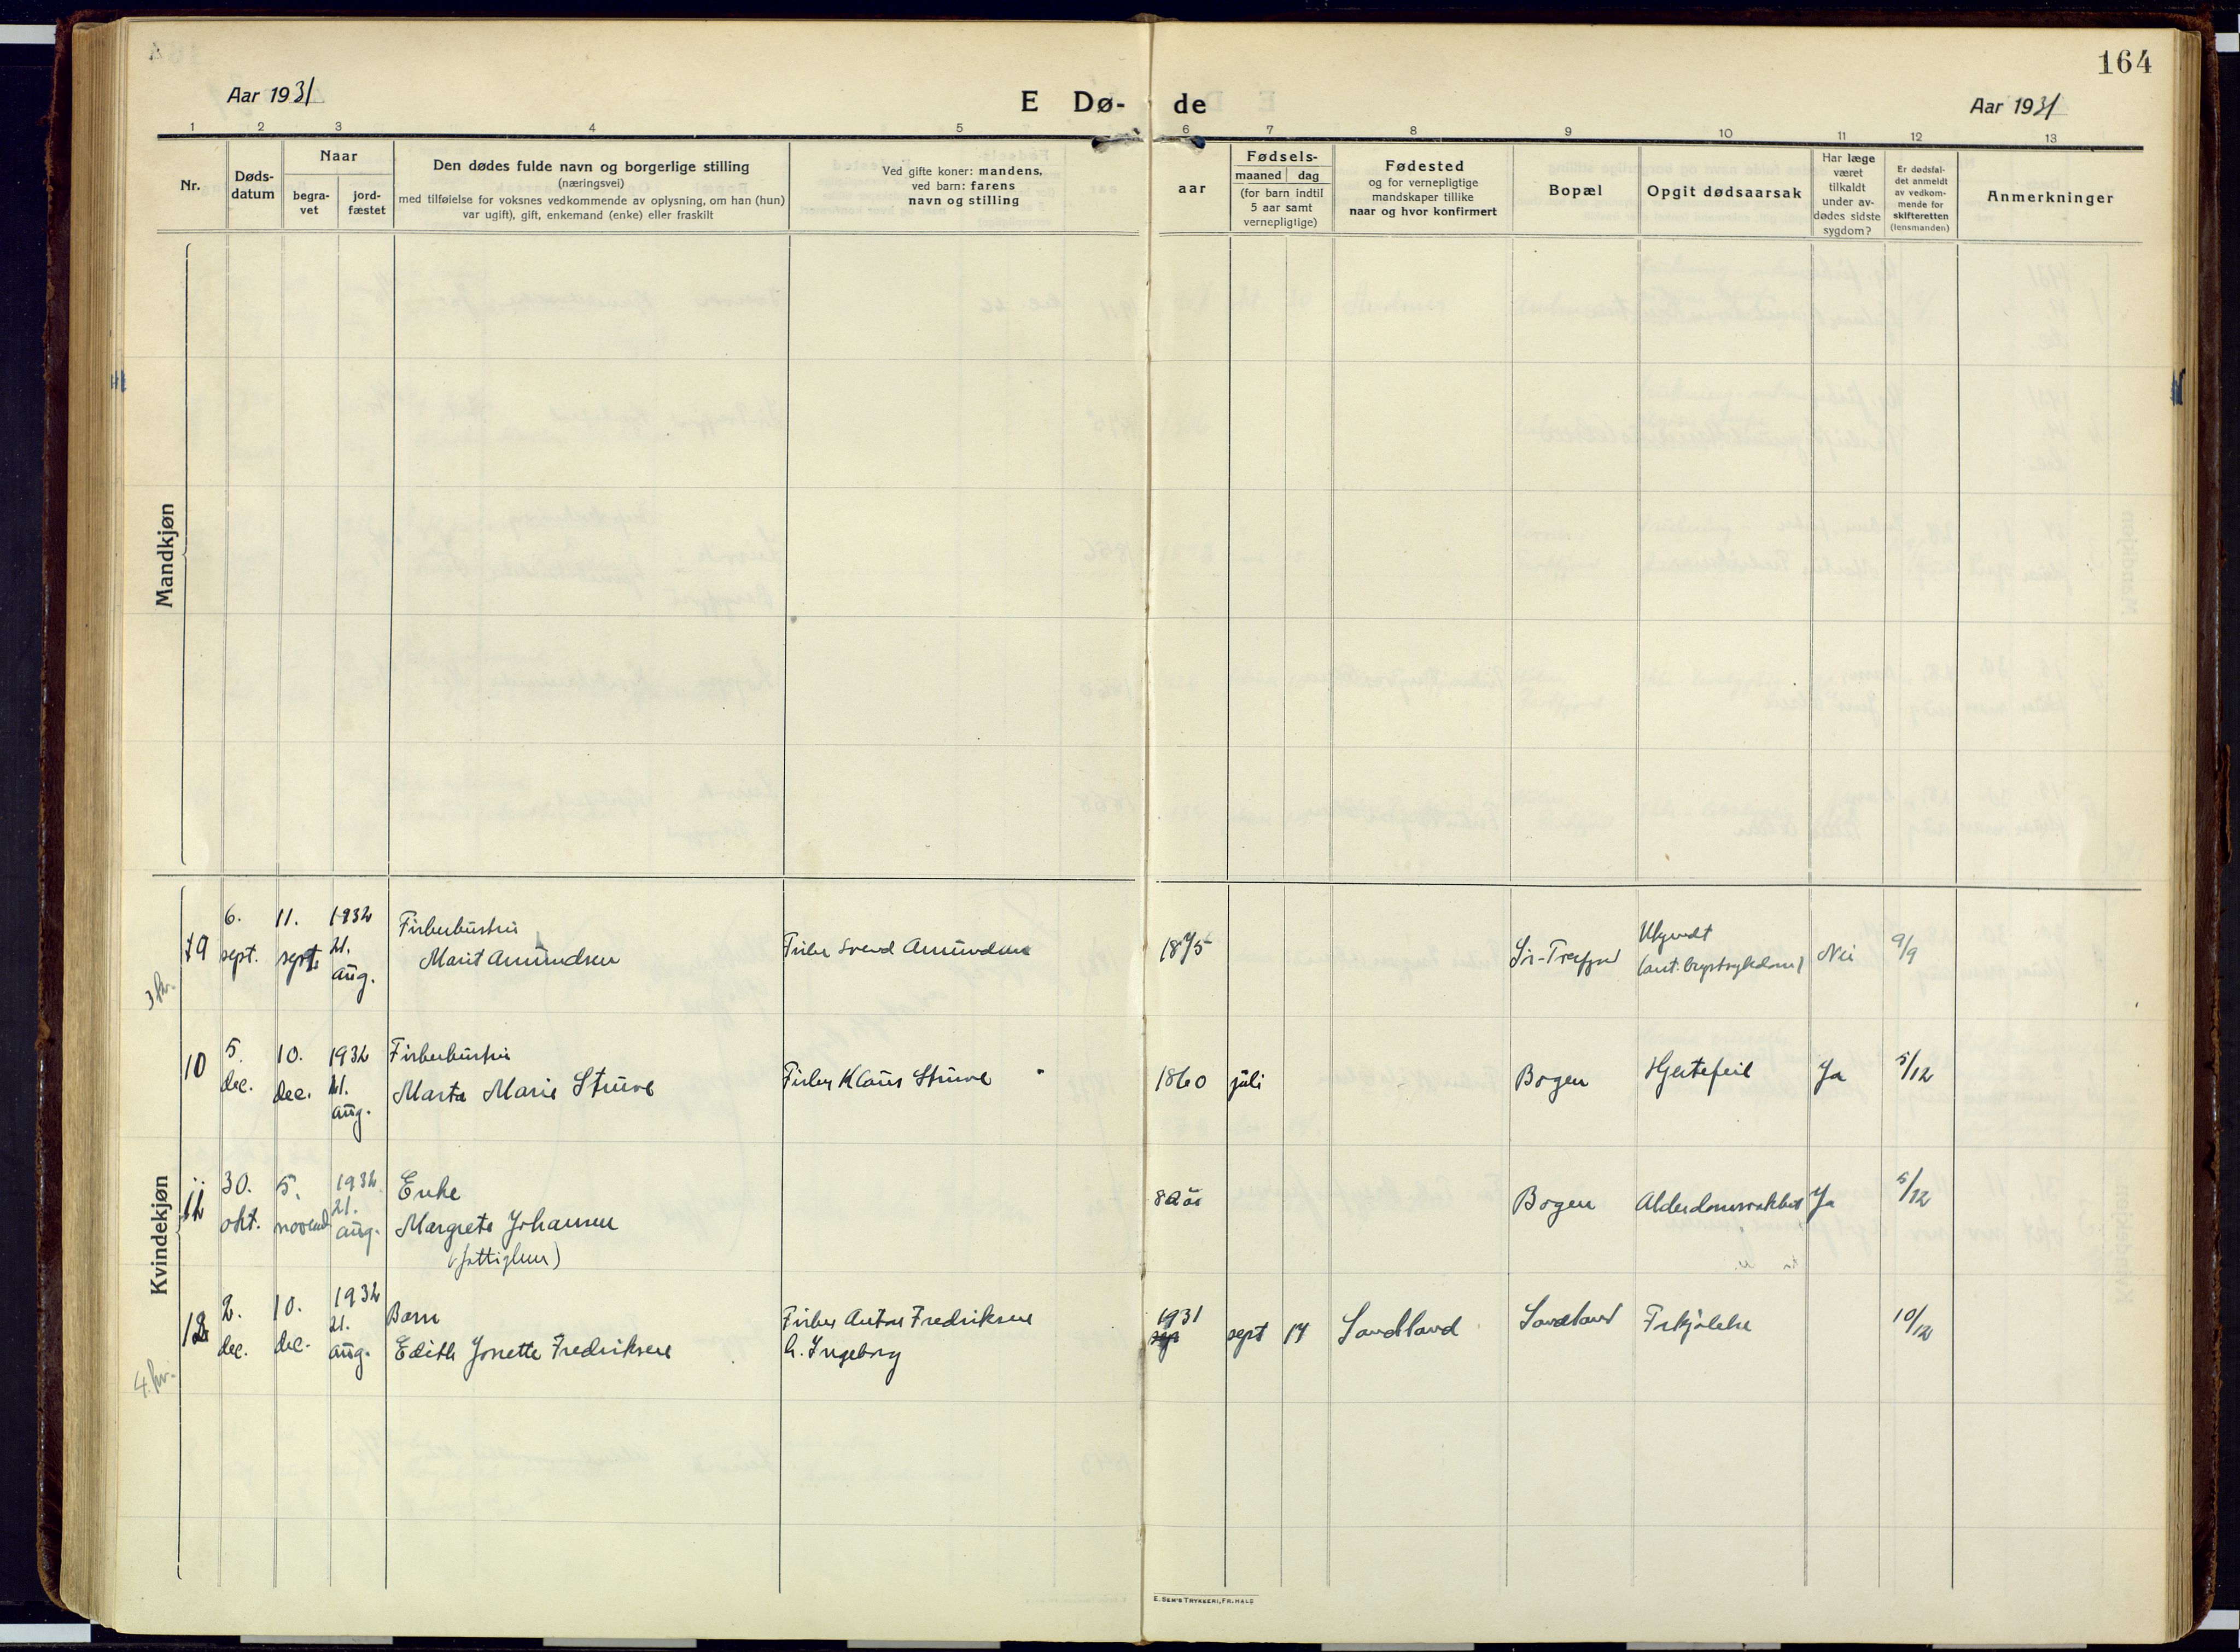 164
Aar 1931
E Dø- de
Aar 1931
1 2 3 4 5 6 7 8 9 10 11 12 13
Nr.
Døds-
datum
Naar
begra-
vet
jord-
fæstet
Den dødes fulde navn og borgerlige stilling
(næringsvei)
med tilføielse for voksnes vedkommende av oplysning, om han (hun)
var ugift), gift, enkemand (enke) eller fraskilt
Ved gifte koner: mandens,
ved barn: farens
navn og stilling
aar
Fødsels-
maaned dag
(for barn indtil
5 aar samt
vernepligtige)
Fødested
og for vernepligtige
mandskaper tillike
naar og hvor konfirmert
Bopæl
Opgit dødsaarsak
Har læge
været
tilkaldt
under av-
dødes sidste
sygdom?
Er dødsfal-
det anmeldt
av vedkom-
mende for
skifteretten
(lensmanden)
Anmerkninger
Mandkjøn
Kvindekjøn
9
6.
sept.
11.
sept.
1932
21.
aug.
Fiskerhustru
Marit Amundsen
Fisker Svend Amundsen
1875
Sør-Tverfjord
Ukjendt
(ant. brystsykdom)
Nei
9/9
3 kr.
10
5.
dec.
10.
dec.
1932
21.
aug.
Fiskerhustru
Marta Marie Struve
Fisker Klaus Struve
1860
juli
Bogen
Hjertefeil
Ja
5/12
11
30.
okt.
5.
novemb
1932
21.
aug.
Enke
Margrete Johansen
(fattiglem)
82 år
Bogen
Alderdomssvakhet
Ja
5/12
12
2.
dec.
10.
dec.
1932
21.
aug.
Barn
Edith Jonette Fredriksen
Fisker Anton Fredriksen
h. Ingeborg
1931
sept
sept 14
Sandland
Sandland
Forkjølelse
10/12
4 kr.
E. SEM'S TRYKKERI, FR.HALD